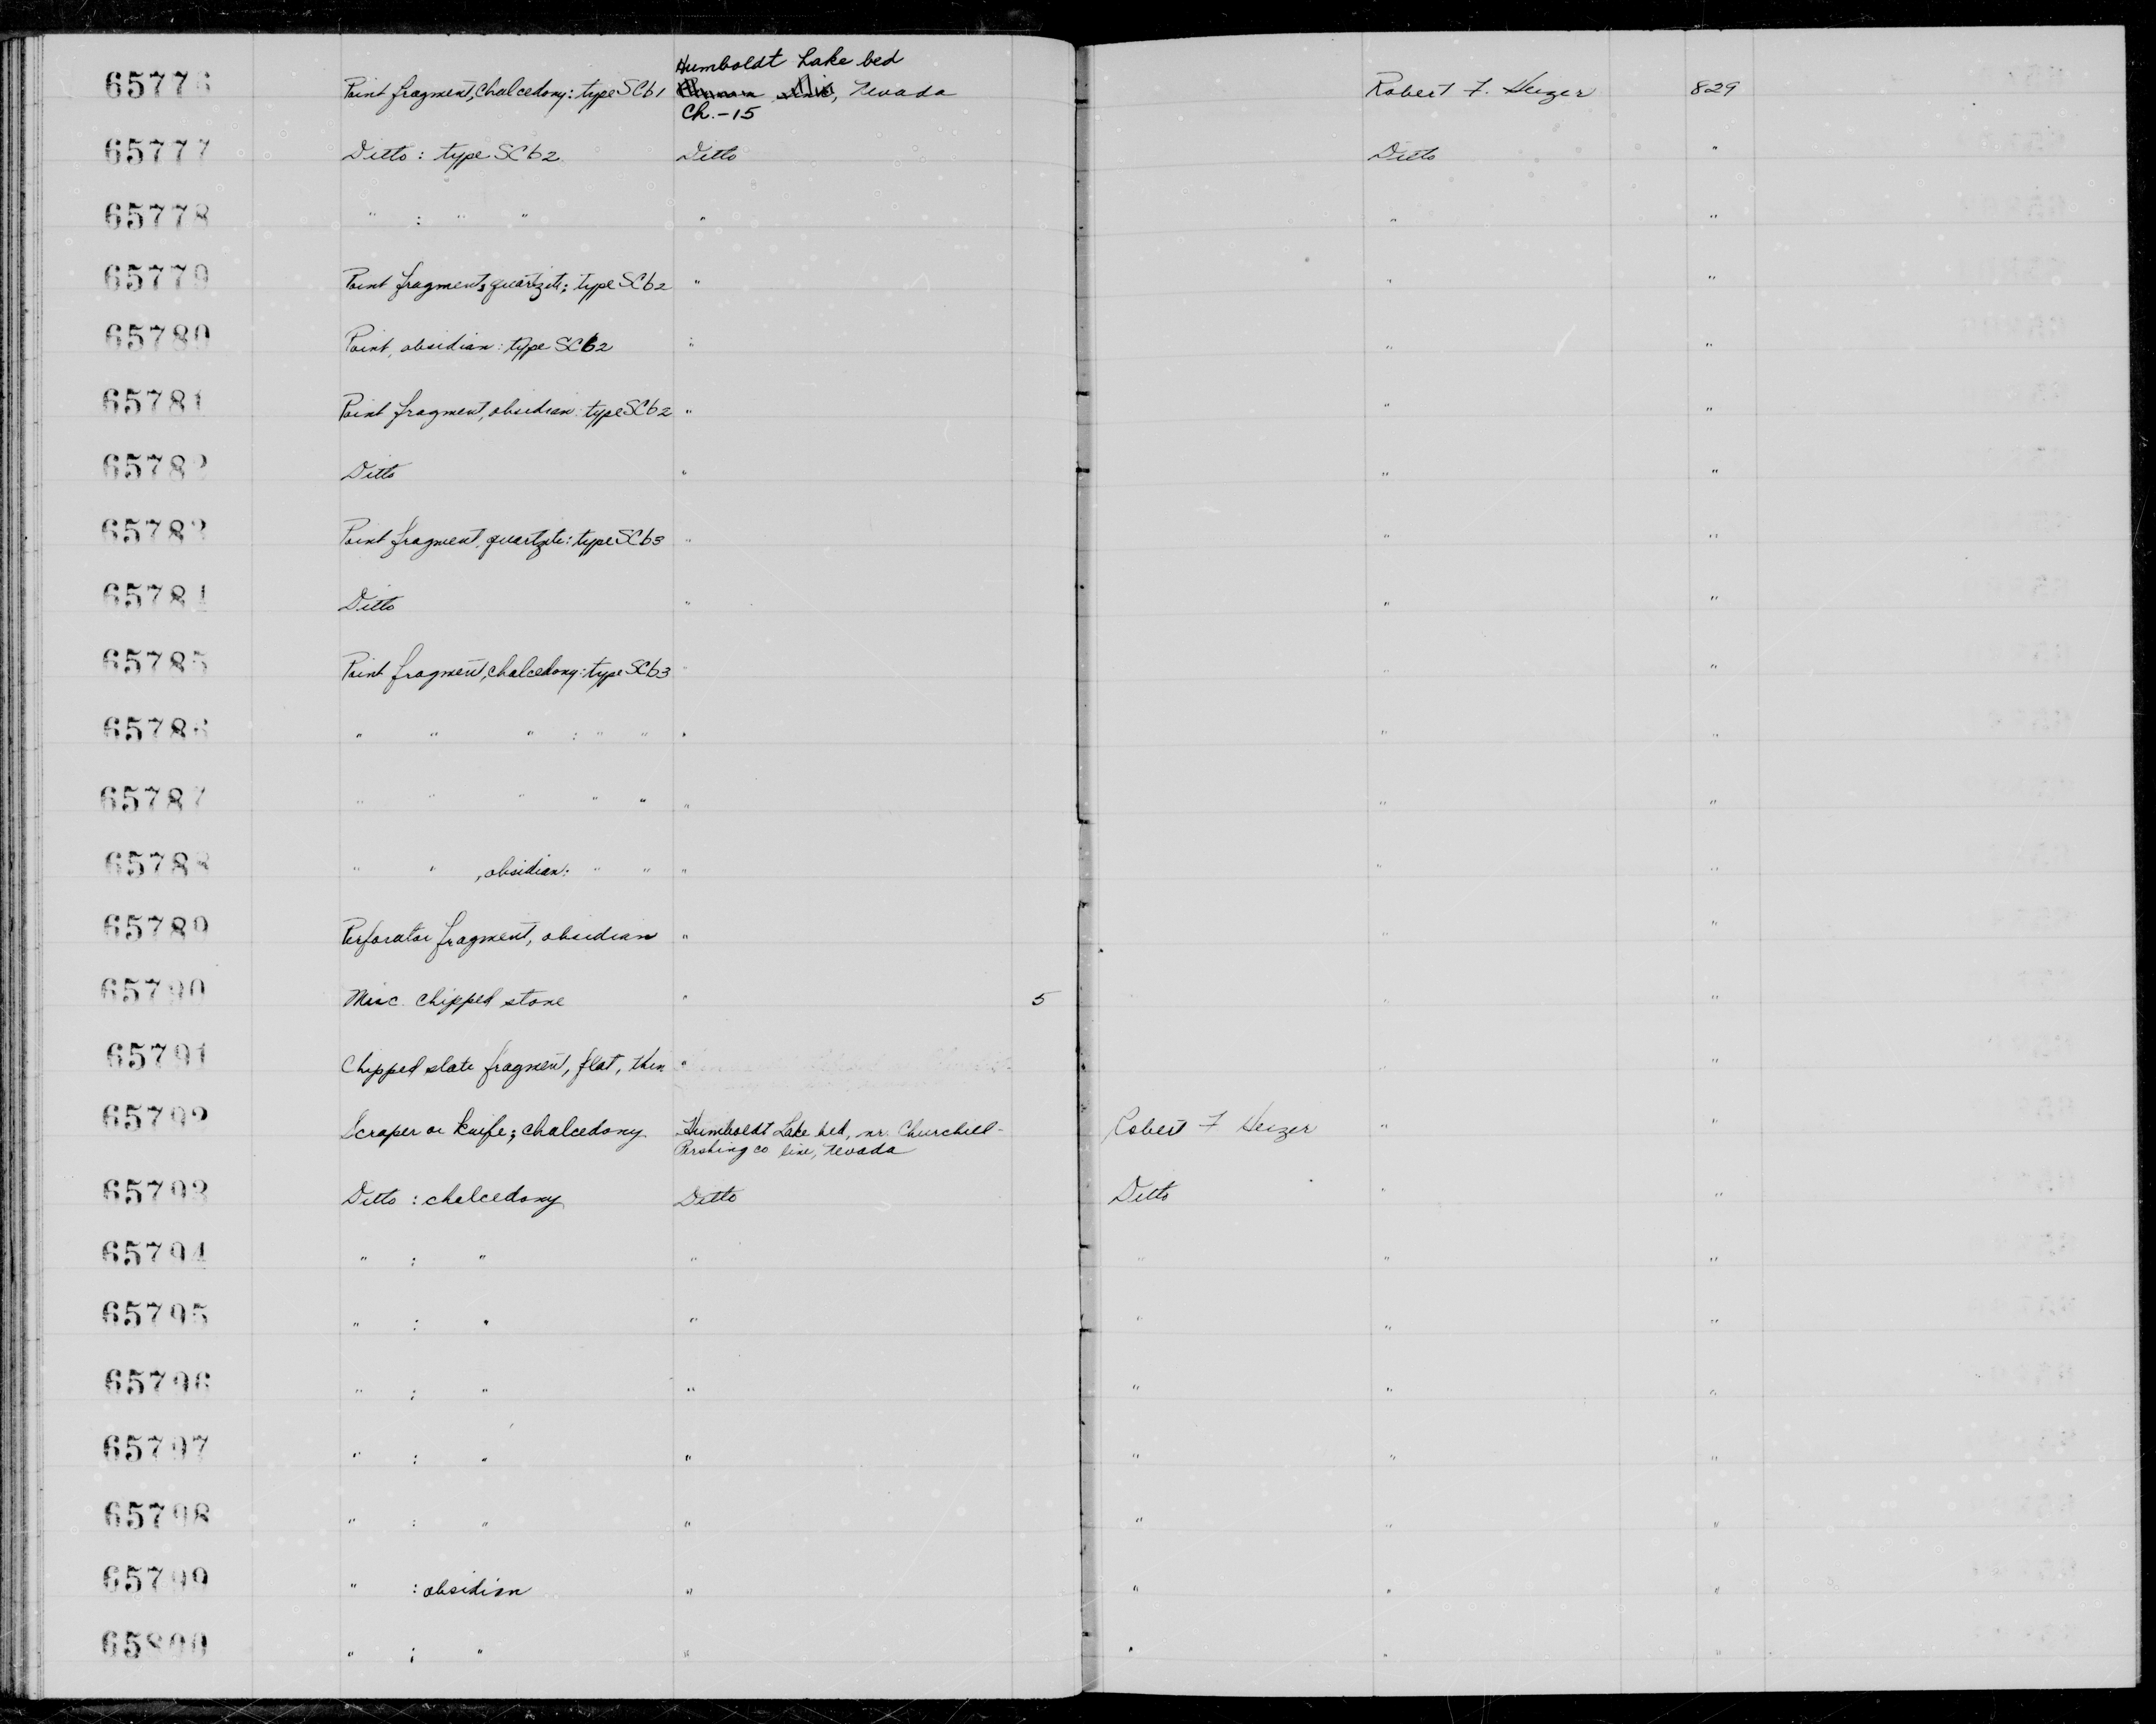 Humboldt Lake bed
65776 Point fragment, chalcedony: type SCb1 Nevada Robert F. Heizer 829
Ch.-15
65777 Ditto: type SCb2 Ditto Ditto "
65778 " : " " " " "
65779 Point fragment, quartzite: type SCb2 " " "
65780 Point, obsidian: type SCb2 " " "
65781 Point fragment, obsidian: type SCb2 " " "
65782 Ditto " " "
65783 Point fragment, quartzite: type SCb3 " " "
65784 Ditto " " "
65785 Point fragment, chalcedony: type SCb3 " " "
65786 " " " : " " " " "
65787 " " " " " " " "
65788 " " , obsidian: " " " " "
65789 Perforator fragment, obsidian " " "
65790 Misc. chipped stone " 5 " "
65791 Chipped slate fragment, flat, thin " " "
65792 Scraper or knife; chalcedony Humboldt Lake bed, nr. Churchill- Robert F Heizer " "
Pershing co line, Nevada
65793 Ditto : chalcedony Ditto Ditto " "
65794 " : " " " " "
65795 " : " " " " "
65796 " : " " " " "
65797 " : " " " " "
65798 " : " " " " "
65799 " : obsidian " " " "
65800 " : " " " " "